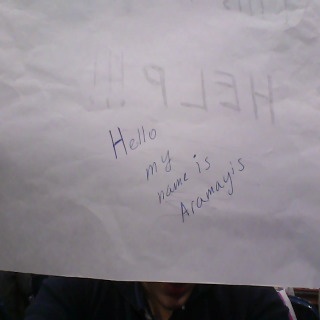 HELP!!!
Hello
my
name is
Aramayis